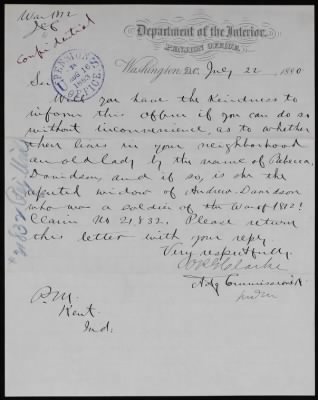 War 1812
Confidential
Department of the Interior,
PENSION OFFICE,
Washington, D.C. July 22, 1880
PENSION OFFICE
AUG 16
Sir
Will you have the kindness to
inform this office if you can do so
without inconvenience, as to whether
there lives in your neighborhood
an old lady by the name of Rebecca
Davidson, and if so, is she the
reputed widow of Andrew Davidson
who was a soldier of the War of 1812?
Claim No 21,832. Please return
this letter with your reply
Very respectfully
Clarke
Actg Commissioner
P.M.
Kent.
Ind.